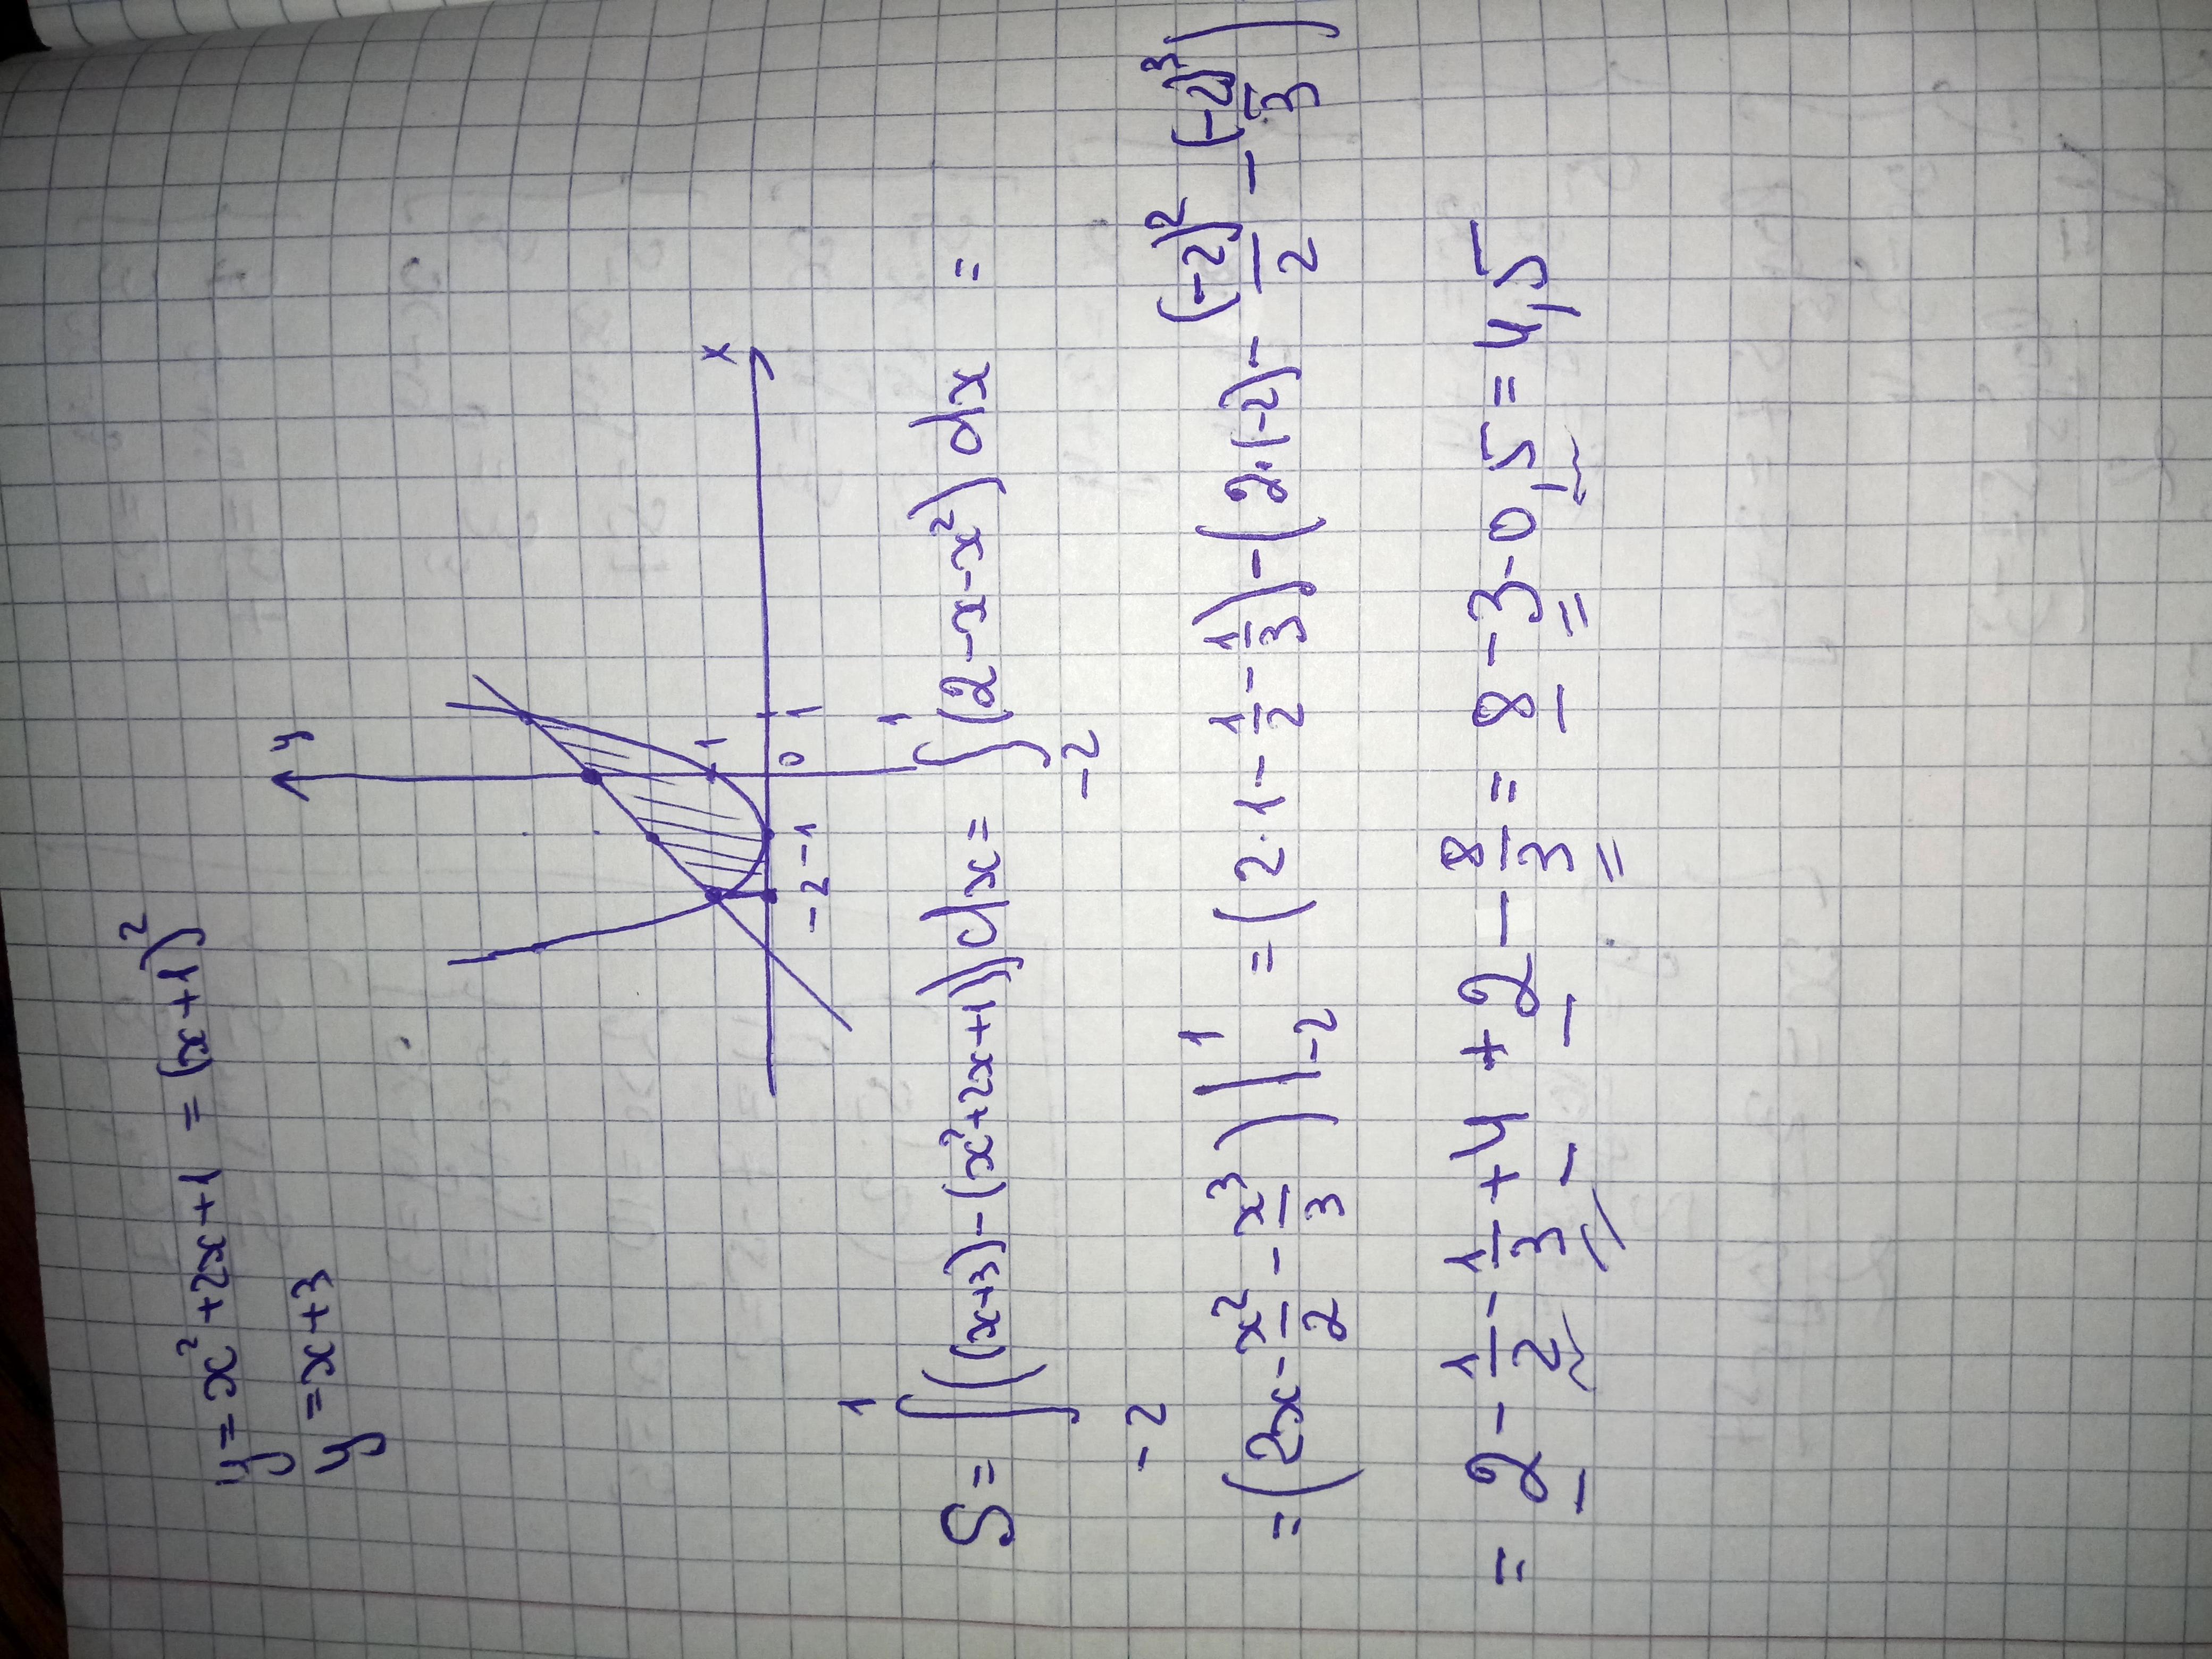 y = x² + 2x + 1 = (x+1)²
y = x + 3
y
x
1
-2 -1 0 1
S = ∫₋₂¹ ((x+3) - (x²+2x+1)) dx = ∫₋₂¹ (2 - x - x²) dx =
= (2x - x²/2 - x³/3) |₋₂¹ = (2·1 - 1/2 - 1/3) - (2·(-2) - (-2)²/2 - (-2)³/3)
= 2 - 1/2 - 1/3 + 4 + 2 - 8/3 = 8 - 3 - 0,5 = 4,5